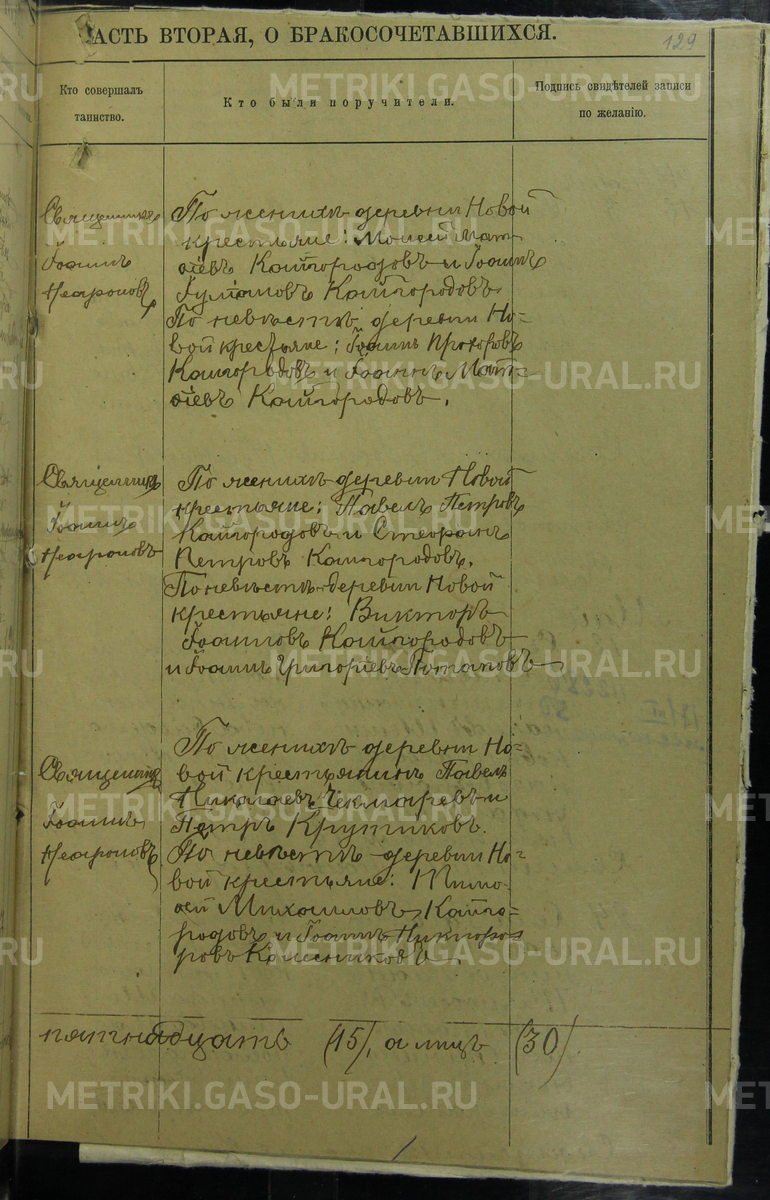 АСТЬ ВТОРАЯ, О БРАКОСОЧЕТАВШИХСЯ.
129
Кто совершалъ
таинство.
Кто были поручители.
Подпись свидѣтелей записи
по желанію.
Священникъ
Іоаннъ
По женихѣ деревни Новой
крестьяне: Моисей Мат-
ѳіевъ Кайгородовъ и Іоаннъ
Кайгородовъ
По невѣстѣ деревни Но-
вой крестьяне: Іоаннъ Прохоровъ
Кайгородовъ и Іоаннъ Мат-
ѳіевъ Кайгородовъ.
Священникъ
Іоаннъ
По женихѣ деревни Новой
крестьяне: Павелъ Петровъ
Кайгородовъ и Стефанъ
Петровъ Кайгородовъ.
По невѣстѣ деревни Новой
крестьяне: Викторъ
Іоанновъ Кайгородовъ
и Іоаннъ Григоріевъ Потаповъ
Священникъ
Іоаннъ
По женихѣ деревни Но-
вой крестьянинъ Павелъ
Николаевъ Чекмаревъ и
Петръ Крутиковъ.
По невѣстѣ деревни Но-
вой крестьяне: Тимо-
ѳей Михаиловъ Кайго-
родовъ и Іоаннъ
ровъ Колесниковъ.
пятнадцать (15), а лицъ (30)
METRIKI.GASO-URAL.RU